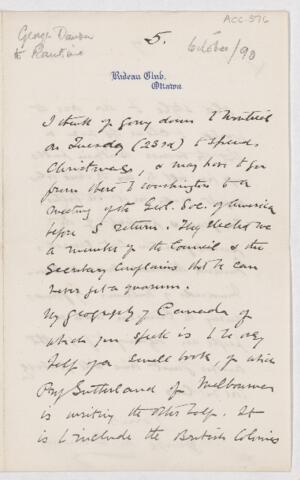 George Dawson
to Rankine
ACC-576
5.
October/90
Rudeau Club.
Ottawa.
I think of going down to Montreal
on Tuesday (23rd) to spend
Christmas, & may have to go
from there to Washington to a
meeting of the Geol. Soc. of America
before I return. They elected me
a member of the Council & the
Secretary complains that he can
never get a quorum.
My geography of Canada of
which you speak is to be only
half of a small book, of which
Prof Sutherland of Melbourne
is writing the other half. It
is to include the British Colonies